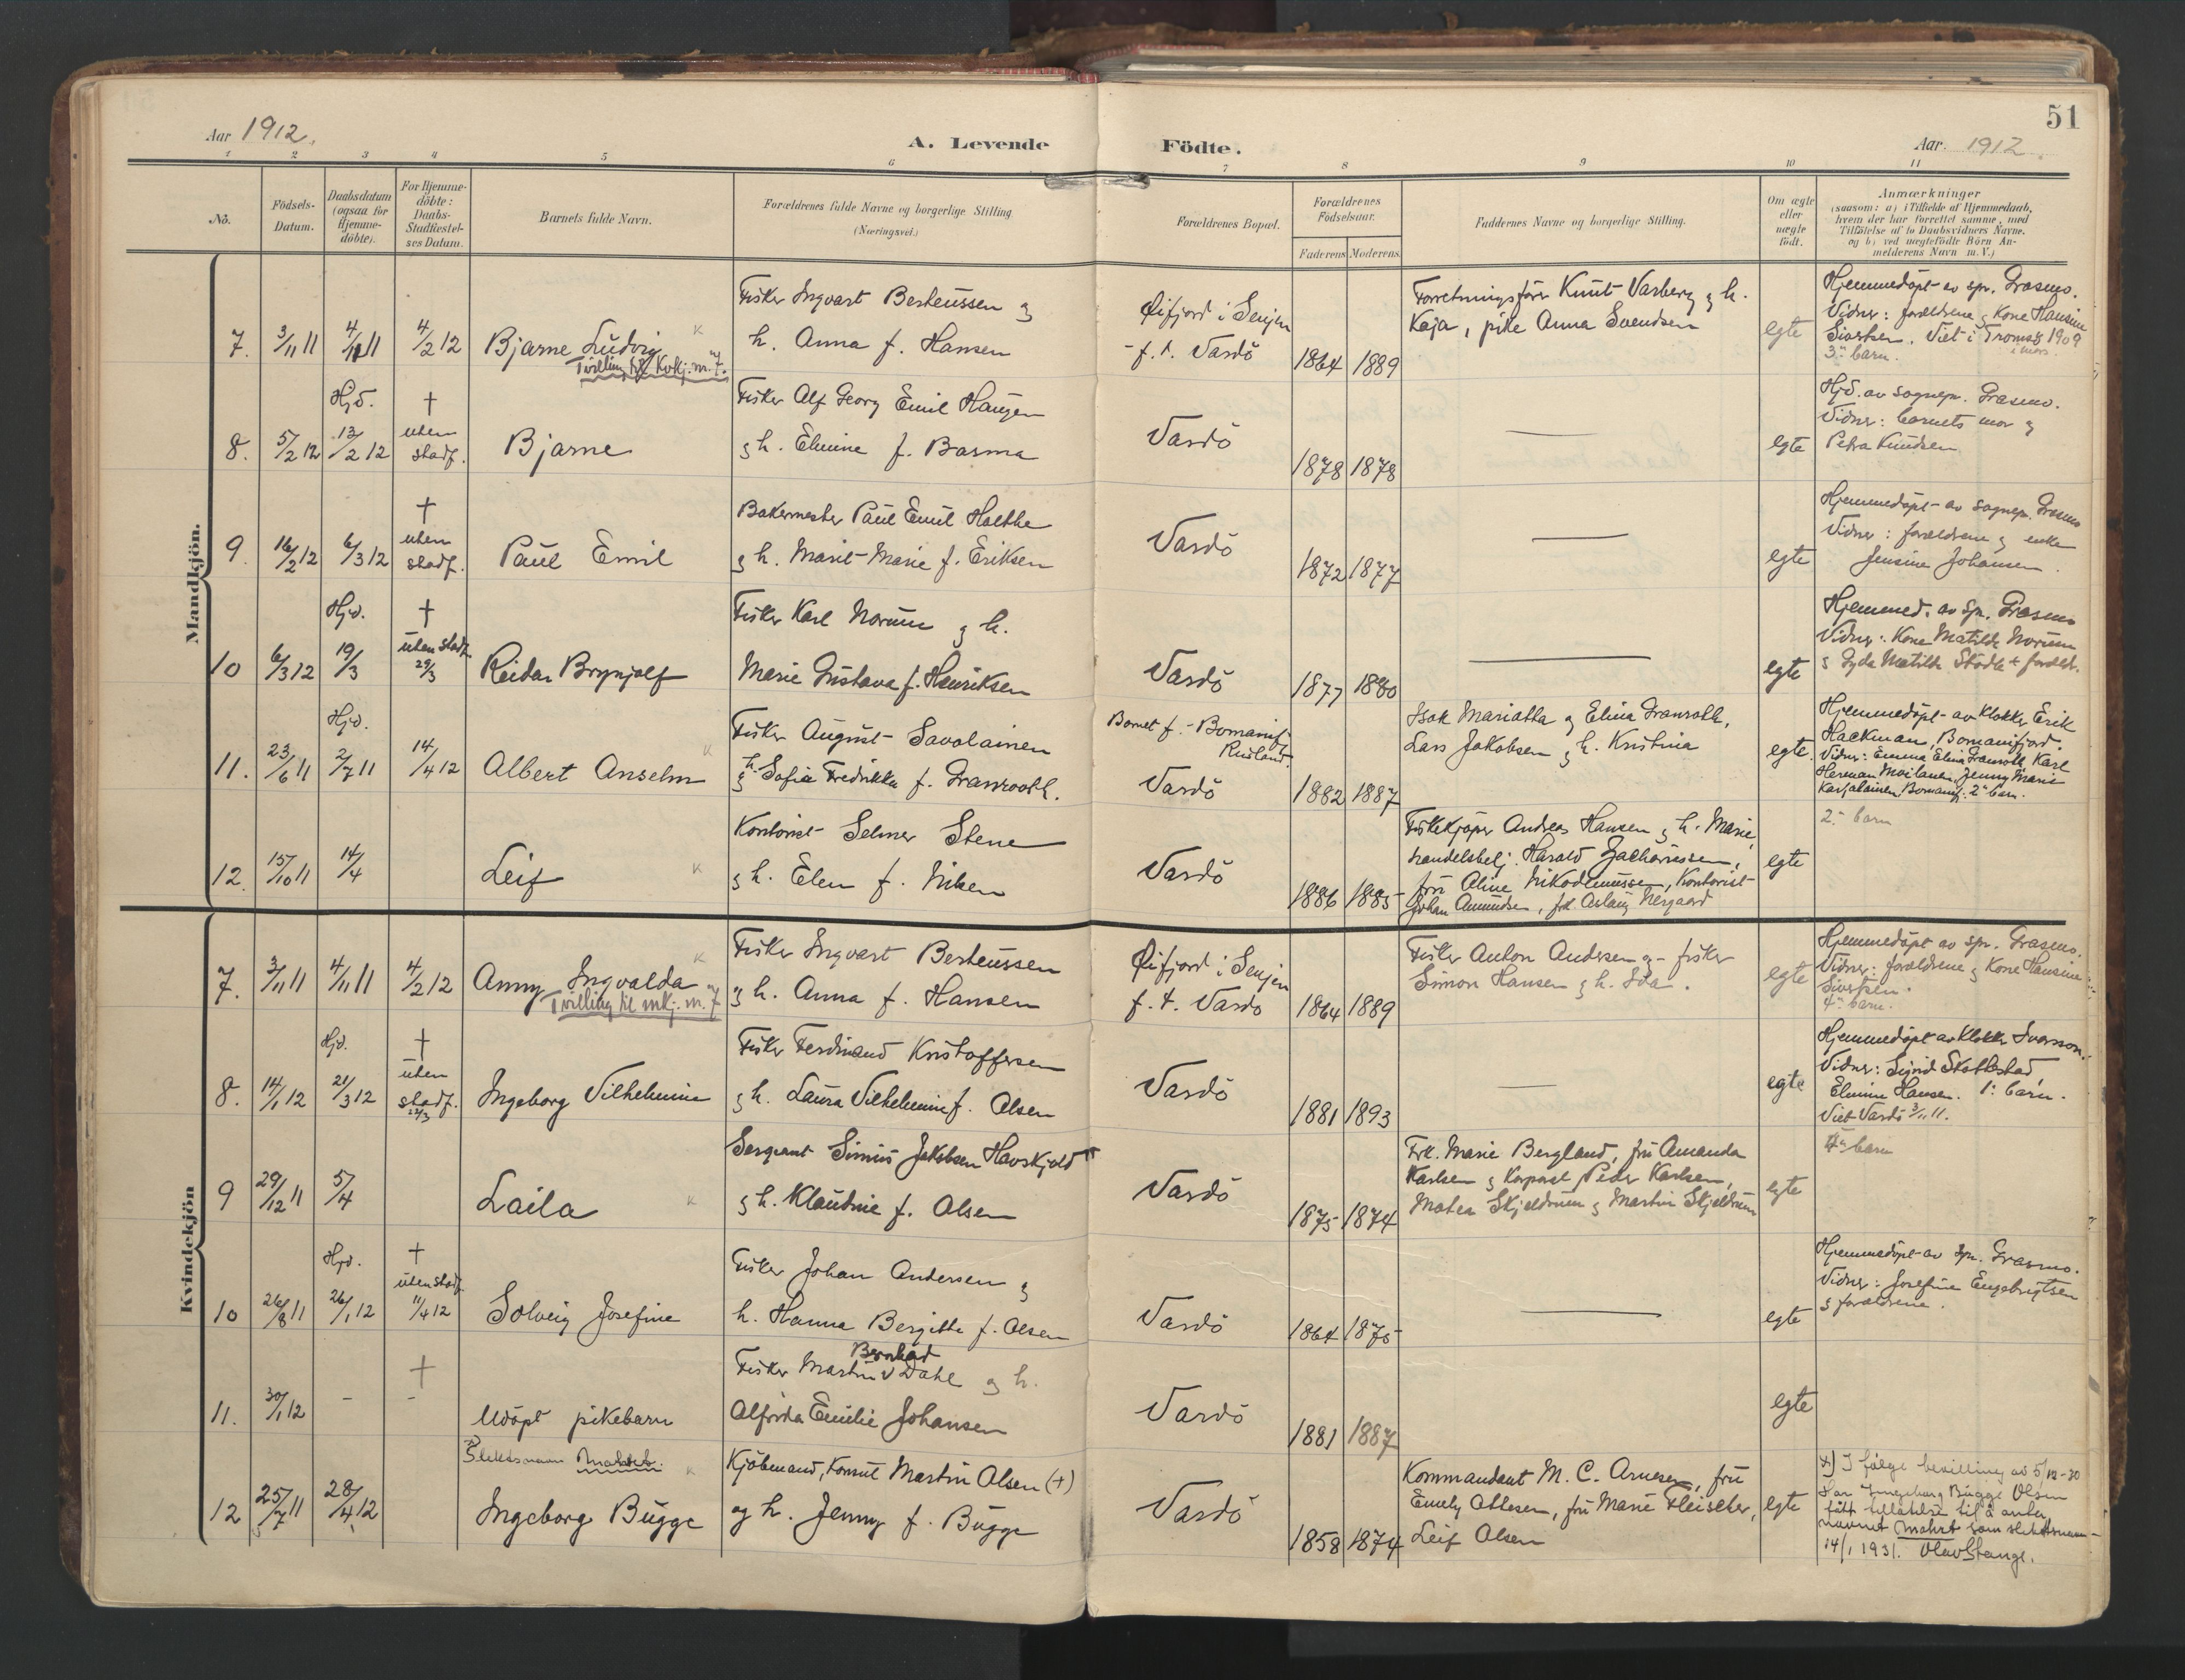 51
Aar 1912.
A. Levende Födte.
Aar. 1912.
1 2 3 4 5 6 7 8 9 10 11
No.
Födsels-Datum.
Daabsdatum (ogsaa for Hjemme-döbte).
For Hjemme-döbte: Daabs-Stadfæstel-ses Datum.
Barnets fulde Navn.
Forældrenes fulde Navne og borgerlige Stilling
(Næringsvei.)
Forældrenes Bopæl.
Forældrenes Födselsaar.
Faderens Moderens
Faddernes Navne og borgerlige Stilling.
Om ægte eller uægte födt.
Anmærkninger
(saasom: a) i Tilfælde af Hjemmedaab,
hvem der har forrettet samme, med
Tilföielse af to Daabsvidners Navne.
og b) ved uægtefödte Börn An-
melderens Navn m. V.)
Mandkjön.
7. 3/11 11 4/11 11 4/2 12 Bjarne Ludvig
Tvilling til Kvkj. nr. 7.
Fisker Ingvart Berteussen g
h. Anna f. Hansen
Øifjord i Senjen
- f. t. Vardö
1864 1889
Forretningsfører Knut Varberg g h.
Kaja, pike Anna Svendsen
egte
Hjemmedöpt av spr. Grasmo.
Vidner: forældrene g Kone Hansine
Sivertsen. Viet i Tromsø 1909
3. barn.
8. 5/2 12 Hjd. 13/2 12 † uten stadf. Bjarne
Fisker Alf Georg Emil Haugen
g h. Elmine f. Basma
Vardö
1878 1878
egte
Hjd. av sognepr. Grasmo.
Vidner: barnets mor g
Petra Knudsen
9. 16/2 12 6/3 12 † uten stadf. Paul Emil
Bakermester Paul Emil Holthe
g h. Marit-Marie f. Eriksen
Vardö
1872 1877
egte
Hjemmedöpt av sognepr. Grasmo
Vidner: forældrene g enke
Jensine Johansen.
10 6/3 12 Hjd. 19/3 † uten stadf. 29/3 Reidar Brynjolf
Fisker Karl Norum g h.
Marie Gustava f. Henriksen
Vardö
1877 1880
egte
Hjemmed. av spr. Grasmo
Vidner: Kone Matilde Norum
g Gyda Matilde
11. 23/6 11 Hjd. 2/7 11 14/4 12 Albert Anselm
Fisker August Savolainen
g h. Sofia Fredrikke f. Granrooth.
Barnet f. Bomanifj. Rusland.
Vardö
1882 1887
Isak Mariatta g Elina Granroth,
Lars Jakobsen g h. Kristina
egte.
Hjemmedöpt av Klokker Erik
Hackman, Bomanifjord.
Vidner: Emma Elina Granroth, Karl
Herman Moilanen, Jenny Marie
Karjalainen, Bomanifj. 2. barn.
12. 15/10 11 14/4 Leif
Kontorist Selmer Stene
g h. Elen f. Nilsen
Vardö
1886 1885
Fiskekjøper Andreas Hansen g h. Marie,
handelsbetj. Harald Zachariassen,
fru Aline Nikodemussen, Kontorist
Johan Amundsen, frk. Aslaug Nergaard
egte
2. barn
Kvindekjön
7. 3/11 11 4/11 11 4/2 12 Anny Ingvalda
Tvilling til mkj. nr. 7
Fisker Ingvart Berteussen
g h. Anna f. Hansen
Øifjord i Senjen
f. t. Vardö
1864 1889
Fisker Anton Andersen g fisker
Simon Hansen g h. Ida.
egte
Hjemmedöpt av spr. Grasmo.
Vidner: forældrene g Kone Hansine
Sivertsen.
4. barn.
8. 14/1 12 Hjd. 21/3 12 † uten stadf. 22/3 Ingeborg Vilhelmine
Fisker Ferdinand Kristoffersen
g h. Laura Vilhelmine f. Olsen
Vardö
1881 1893
egte
Hjemmedöpt av Klokker Ivarsson.
Vidner: Sigrid Skattestad
Elmine Hansen. 1. barn.
Viet Vardö 3/11 11.
9 29/12 11 5/4 Laila
Sergeant Simius Jakobsen Havskjold
g h. Klaudine f. Olsen
Vardö
1875 1874
Frk. Marie Bergland, fru Amanda
Karlsen g Korporal Peder Karlsen,
Matea Skjeldrum g Martin Skjeldrum
egte
4. barn
10 26/8 11 Hjd. 26/1 12 † uten stadf. 11/4 12 Solveig Josefine
Fisker Johan Andersen g
h. Hanna Bergitte f. Olsen
Vardö
1864 1875
egte
Hjemmedöpt av spr. Grasmo.
Vidner: Josefine Engebrigtsen
g forældrene.
11. 30/1 12 - † - Udöpt pikebarn
Fisker Martin Bernhard Dahl g h.
Alfrida Emilie Johansen
Vardö
1881 1887
egte
12 25/7 11 28/4 12 Slektsnavn Mohrt.
Ingeborg Bugge
Kjöbmand, Konsul Martin Olsen (+)
og h. Jenny f. Bugge
Vardö
1858 1874
Kommandant M. C. Arnesen, fru
Emely Ottesen, fru Marie Fleischer,
Leif Olsen
egte
+) I følge bevilling av 5/12-30
har Ingeborg Bugge Olsen
fått tillatelse til å anta
navnet Mohrt som slektsnavn
14/1 1931. Olav Stange.